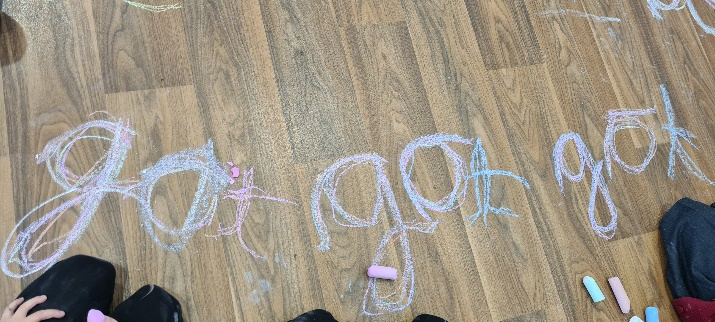 got got got